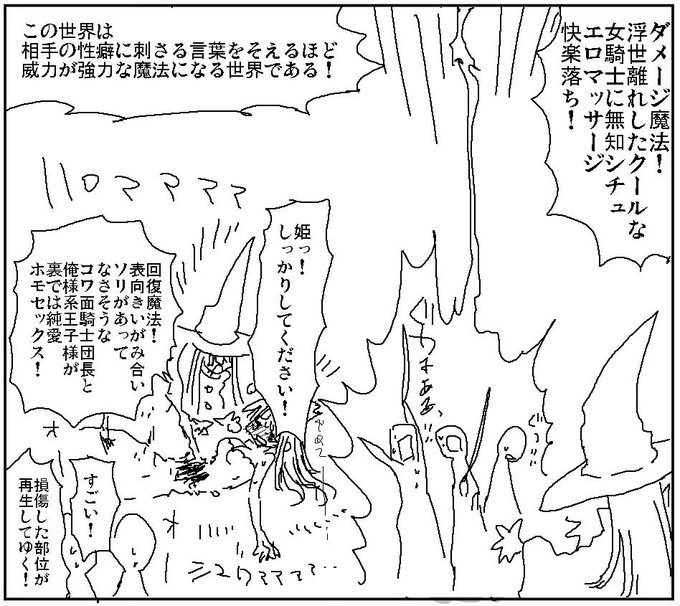 この世界は
相手の性癖に刺さる言葉をそえるほど
威力が強力な魔法になる世界である!
ダメージ魔法!
浮世離れしたクールな
女騎士に無知シチュ
エロマッサージ
快楽落ち!
姫っ!
しっかりしてください!
回復魔法!
表向きいがみ合い
ソリがあって
なさそうな
コワ面騎士団長と
俺様系王子様が
裏では純愛
ホモセックス!
すごい!
損傷した部位が
再生してゆく!